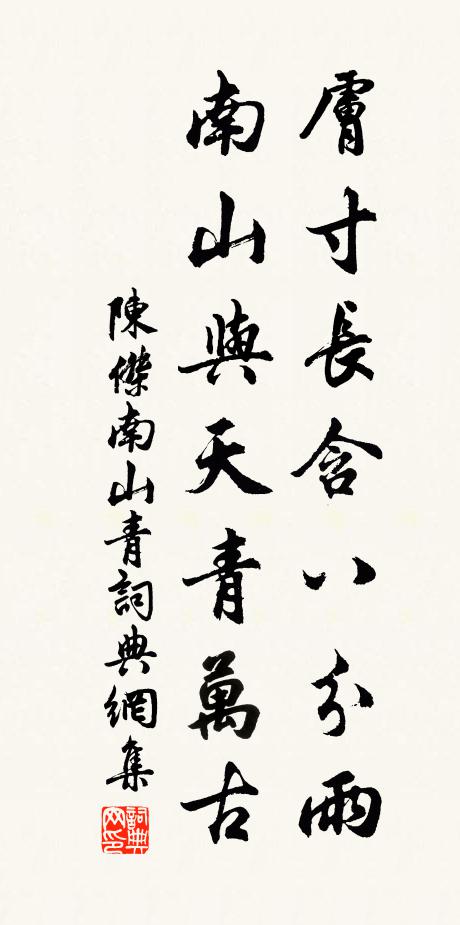 膚寸長含八分雨
南山與天青萬古
陳傑南山青詞典網集
詞典网印